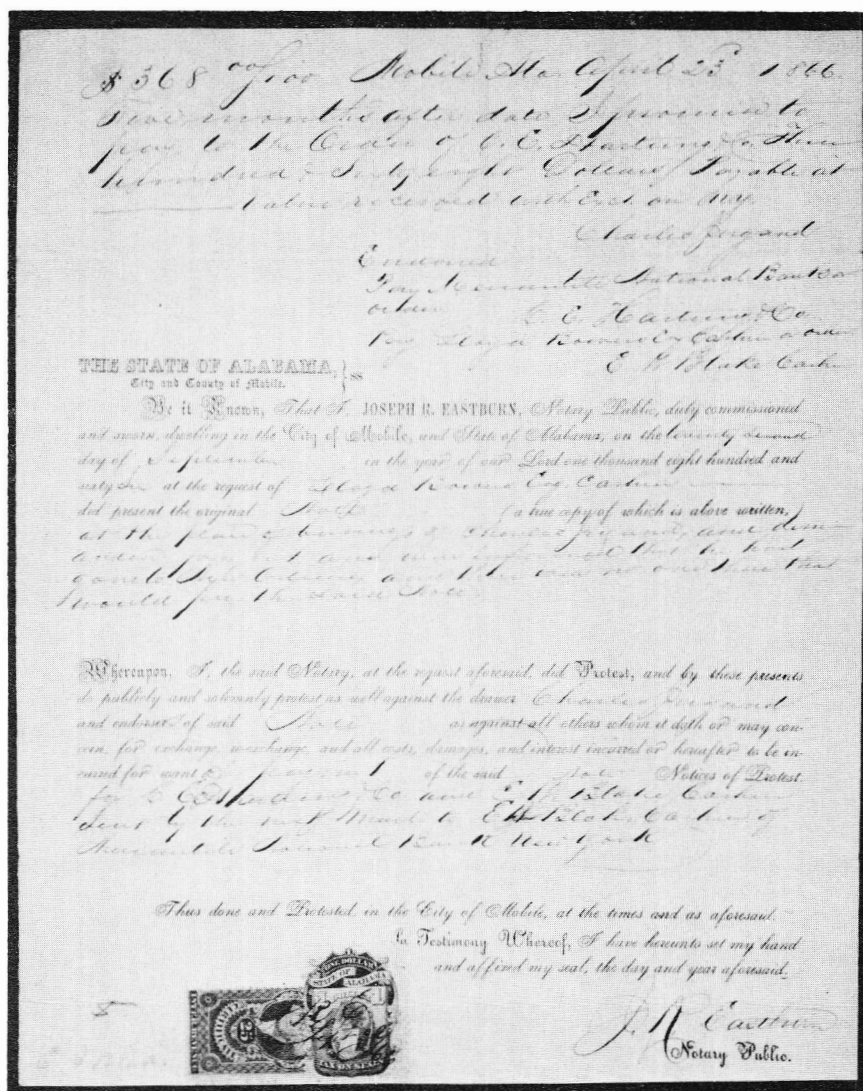 $368 00/100 Mobile Ala. April 23d 1866.
Five months after date I promise to
pay to the Order of C. E. & Co Three
hundred & Sixty eight Dollars Payable at
Value received with Ext. on Ney.
Charles
Endorsed
Pay Mercantile National Bank or
order C. E. & Co
Pay Lloyd Bowers Esq Cashier or order
E W Blake Cashr
THE STATE OF ALABAMA, } ss
City and County of Mobile.
Be it Known, That I, JOSEPH R. EASTBURN, Notary Public, duly commissioned
and sworn, dwelling in the City of Mobile, and State of Alabama, on the twenty second
day of September in the year of our Lord one thousand eight hundred and
sixty six at the request of Lloyd Bowers Esq. Cashier
did present the original Note (a true copy of which is above written,)
at the place of business of Charles and dem-
anded payment and was informed that he had
gone to New Orleans and there was no one there that
would pay the said Note.
Whereupon, I, the said Notary, at the request aforesaid, did Protest, and by these presents
do publicly and solemnly protest as well against the drawer Charles
and endorsers of said Note as against all others whom it doth or may con-
cern, for exchange, re-exchange, and all costs, damages, and interest incurred or hereafter to be in-
curred for want of payment of the said Note Notices of Protest.
for C. E. & Co and E W Blake Cashier
sent by the next Mail to E W Blake Cashier of
Mercantile National Bank New York
Thus done and Protested in the City of Mobile, at the times and as aforesaid.
In Testimony Whereof, I have hereunto set my hand
and affixed my seal, the day and year aforesaid.
J. R. Eastburn
Notary Public.
ONE DOLLAR
STATE OF
ALABAMA
TAX ON SEALS